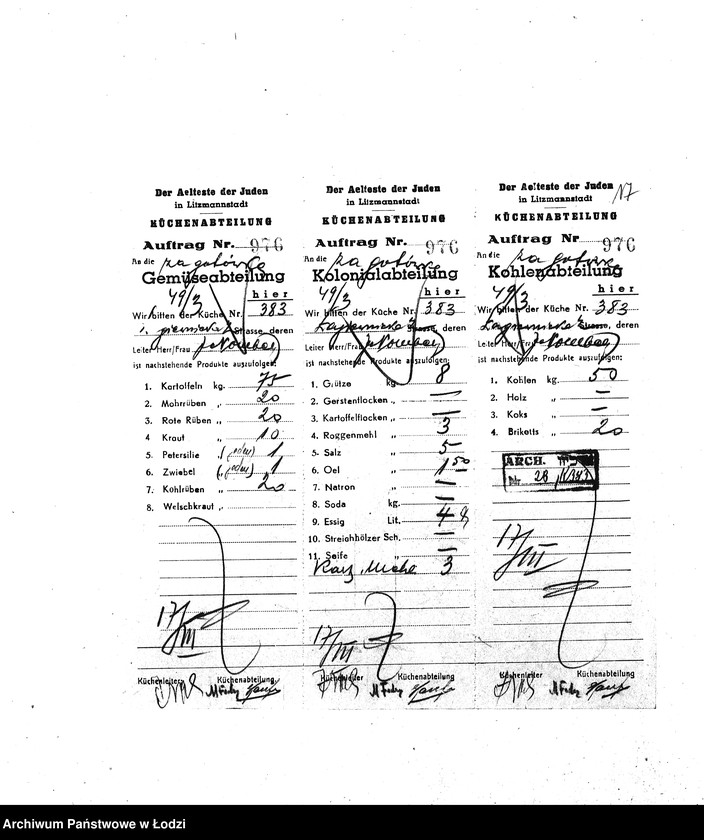 Der Aelteste der Juden
in Litzmannstadt
KÜCHENABTEILUNG
Auftrag Nr. 976
An die za gotówkę
Gemüseabteilung
49/3 hier
Wir bitten der Küche Nr. 383
Strasse, deren
Leiter Herr/Frau
ist nachstehende Produkte auszufolgen:
1. Kartoffeln kg. 75
2. Mohrrüben „ 20
3. Rote Rüben „ 20
4 Kraut „ 10
5. Petersilie „ 1,
6. Zwiebel „ 1
7. Kohlrüben „ 20
8. Welschkraut „
17/III
Küchenleiter Küchenabteilung
Der Aelteste der Juden
in Litzmannstadt
KÜCHENABTEILUNG
Auftrag Nr. 976
An die za gotówkę
Kolonialabteilung
49/3 hier
Wir bitten der Küche Nr. 383
Strasse, deren
Leiter Herr/Frau
ist nachstehende Produkte auszufolgen:
1. Grütze kg 8
2. Gerstenflocken „ —
3. Kartoffelflocken „ —
4. Roggenmehl „ 3
5. Salz „ 5
6. Oel „ 1 50
7. Natron „ —
8. Soda kg. —
9. Essig Lit. 4
10. Streichhölzer Sch. —
11. Seife „ —
3
17/III
Küchenleiter Küchenabteilung
Der Aelteste der Juden
in Litzmannstadt
KÜCHENABTEILUNG
Auftrag Nr 976
An die za gotówkę
Kohlenabteilung
49/3 hier
Wir bitten der Küche Nr. 383
Strasse, deren
Leiter Herr/Frau
ist nachstehende Produkte auszufolgen:
1. Kohlen kg 50
2. Holz „ —
3. Koks „ —
4. Briketts „ 20
ARCH.
Nr. 28
17/III
Küchenleiter Küchenabteilung
Archiwum Państwowe w Łodzi